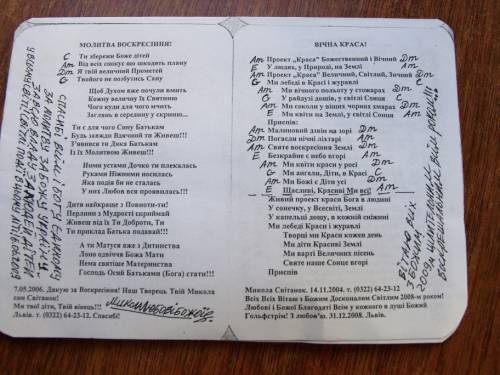 МОЛИТВА ВОСКРЕСІННЯ!
C Ти збережи Боже дітей
Am Від всіх спокус що шкодять плану
Dm Я твій величний Прометей
G Твойого не позбутись Сану
Щоб Духом вже почули вмить
Кожну величну Їх Святиню
Чого куди для чого мчить
Заглянь в середину у скриню...
Ти є для чого Сину Батькам
Будь завжди Вдячний ти Живеш!!!
З'явився ти Дяка Батькам
Із їх Молитвою Живеш!!!
Ними устами Дочко ти плекалась
Руками Ніжними носилась
Яка подія би не сталась
У них Любов вся проявилась!!!
Дитя найкраще з Повноти-ти!
Перлини з Мудрості скриймай
Живеш від їх Ти Доброти, Ти
Ти приклад Батька подавай!!!
А ти Матуся вже з Дитинства
Лоно одвіччя Божа Мати
Нема святіше Материнства
Господь Осяй Батьками (Бога) стати!!!
7.05.2006. Дякую за Воскресіння! Наш Творець Твій Микола
син Світанок!
Ми твої діти, Твій вінець!!!
Львів. т. (0322) 64-23-12. Спасибі!
ВІЧНА КРАСА!
Am Проект „Краса" Божественний і Вічний Dm
E У людях, у Природі, на Землі Am
Am Проект „Краса" Величний, Світлий, Зичний Dm
G Ми лебеді в Красі і журавлі C
Am Ми вічного польоту у стожарах Dm
G У райдузі дощів, у світлі Сонця C
Am Ми соколи у віщих чорних хмарах Dm
E Ми квіти на Землі, у світлі Сонці Am
Приспів:
Am Малиновий дзвін на зорі Dm
Dm Погасли нічні ліхтарі Am
Am Святе воскресіння Землі Dm
E Безкрайнє є небо вгорі Am
Am Ми квіти краси у росі Dm
G Ми ангели, Діти, в Красі C
Am Ми Божі є Діти усі Dm
E Щасливі, Кревні Ми всі! Am
Живий проект краса Бога в людині
У сонечку, у Всесвіті, Землі
У капельці дощу, в кожній сніжині
Ми лебеді Краси і журавлі
Творці ми Краси кожен день
Ми діти Красиві Землі
Ми варті Величних пісень
Святе наше Сонце вгорі
Приспів
Микола Світанок. 14.11.2004. т. (0322) 64-23-12
Всіх Всіх Вітаю з Божим Досконалим Світлим 2008-м роком!
Любові і Божої Благодаті Всім у кожного в душі Божий
Гольфстрім! З любов'ю. 31.12.2008. Львів.